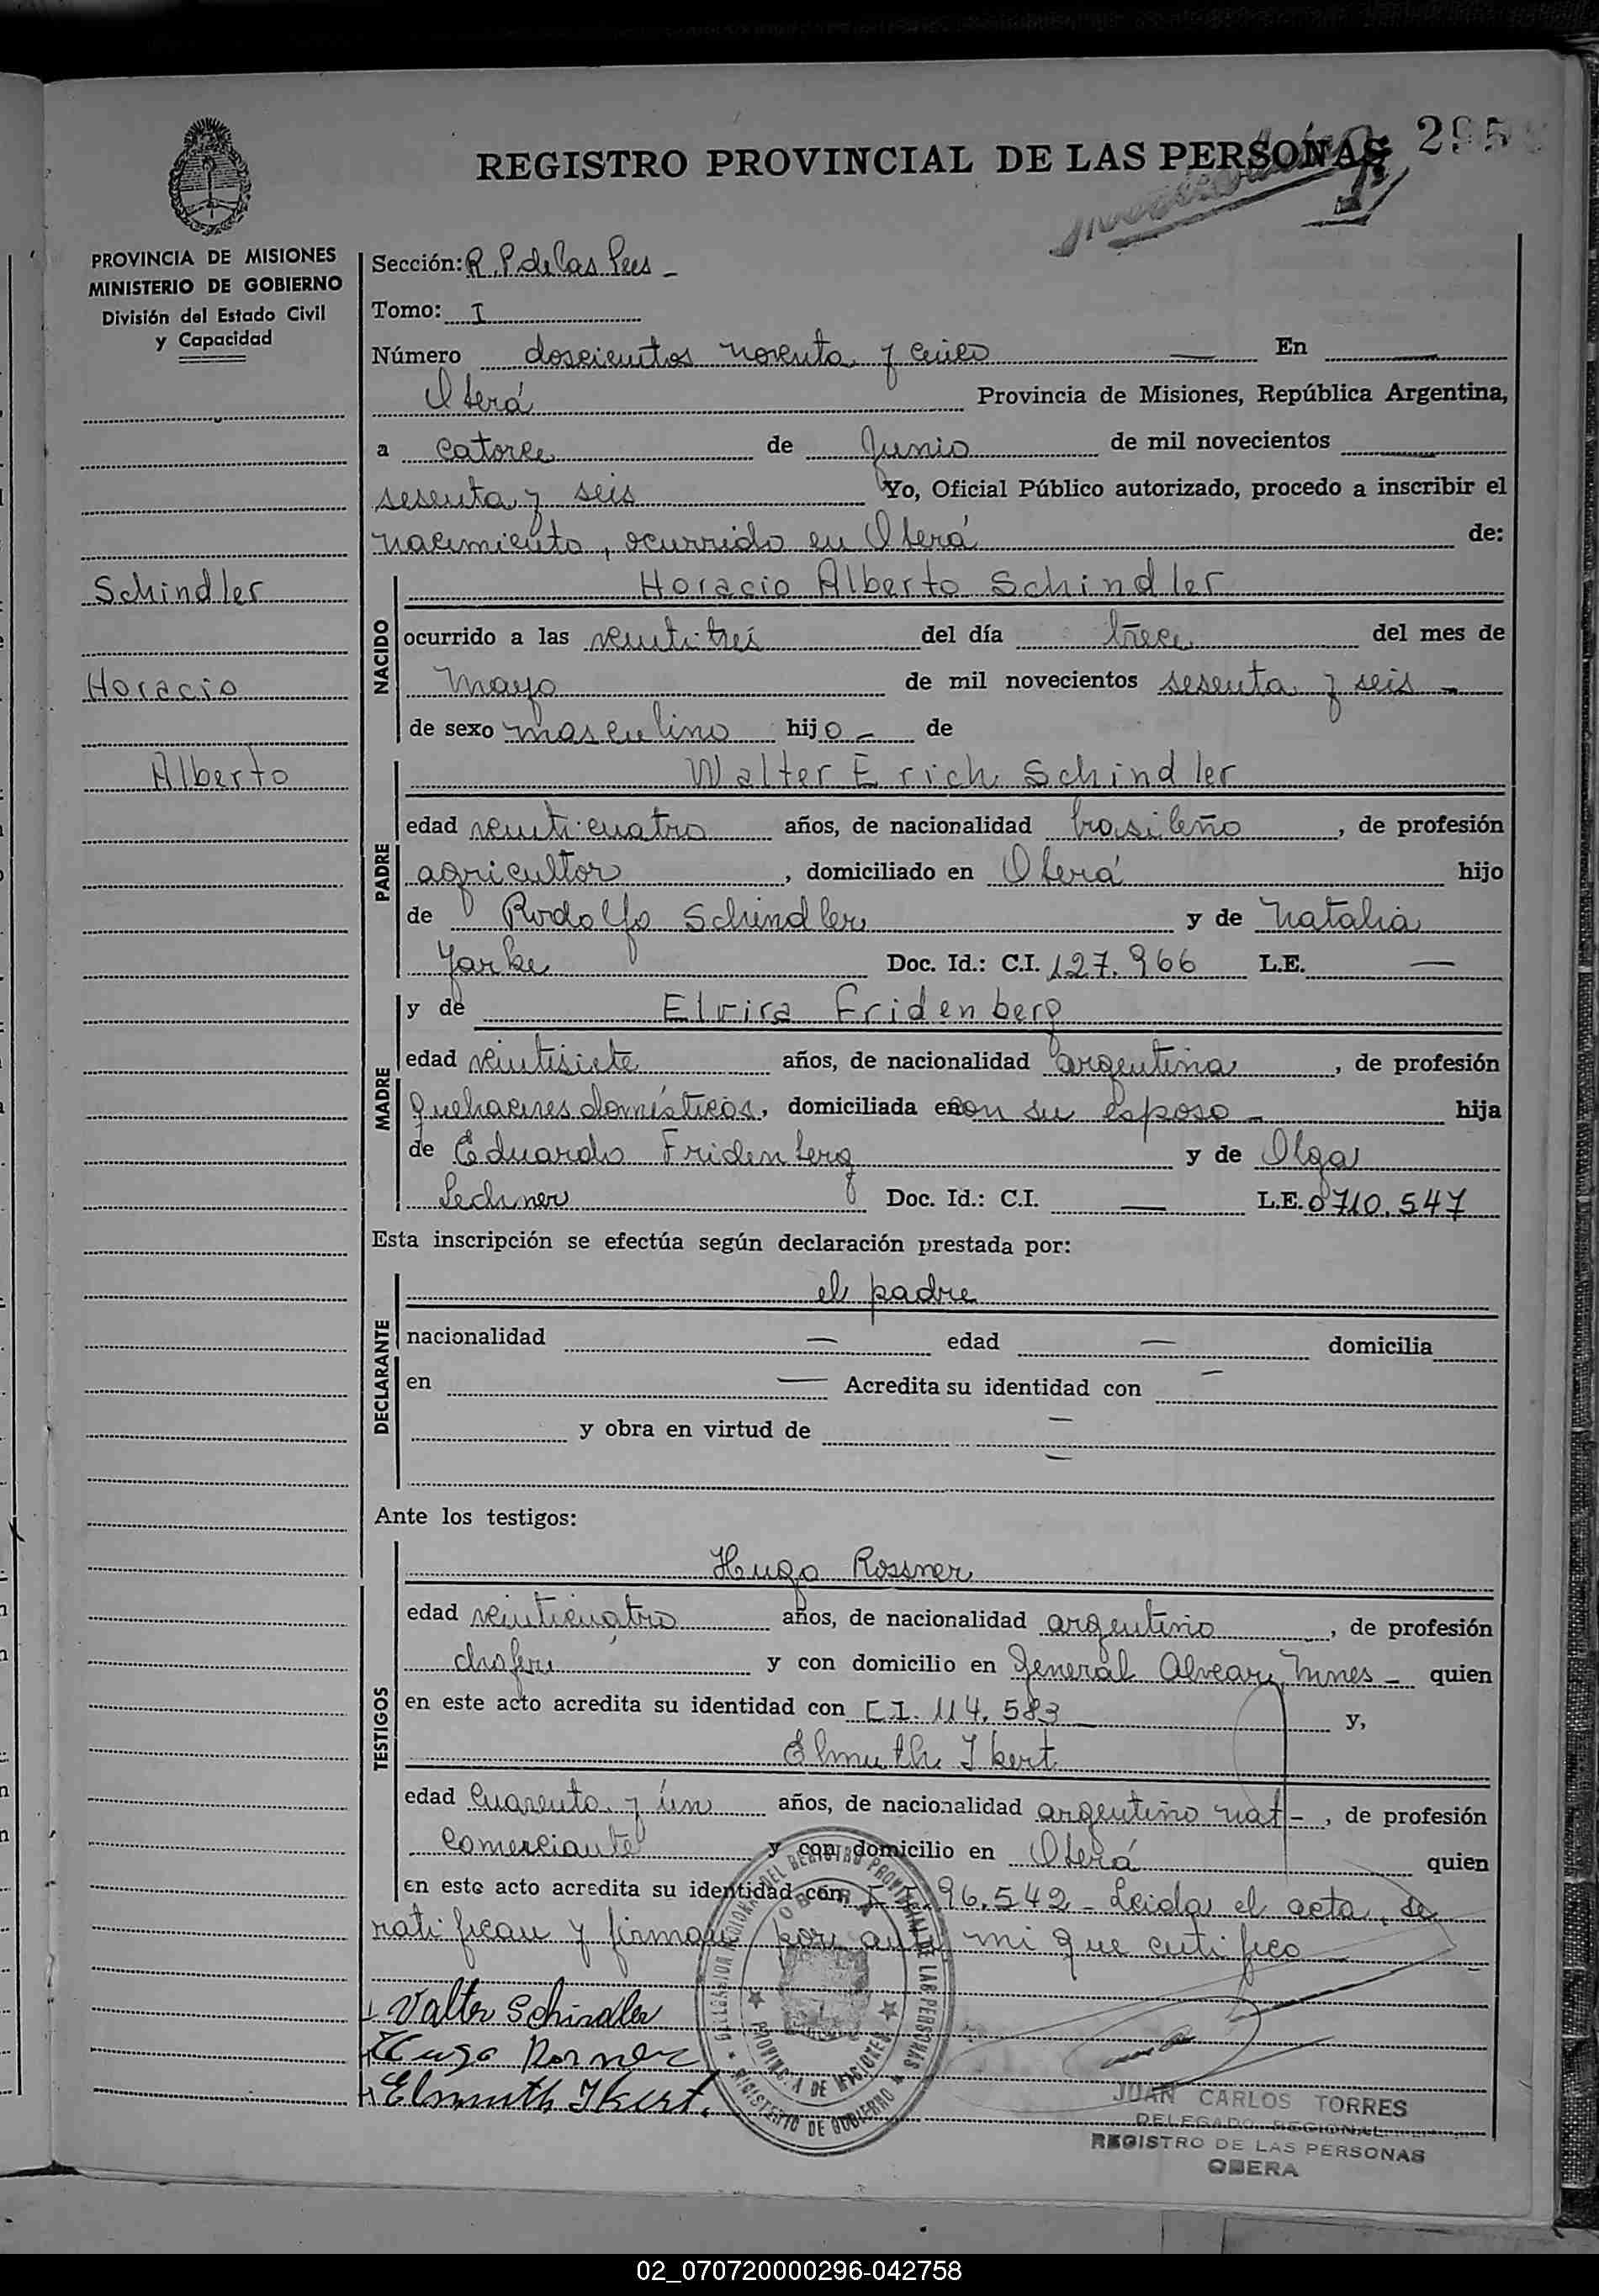 REGISTRO PROVINCIAL DE LAS PERSONAS 295
PROVINCIA DE MISIONES
MINISTERIO DE GOBIERNO
División del Estado Civil
y Capacidad
Schindler
Horacio
Alberto
Sección: R. P. de las Pers -
Tomo: I
Número doscientos noventa y cinco — En —
Oberá Provincia de Misiones, República Argentina,
a catorce de Junio de mil novecientos —
sesenta y seis Yo, Oficial Público autorizado, procedo a inscribir el
nacimiento, ocurrido en Oberá de:
NACIDO
Horacio Alberto Schindler
ocurrido a las veintitrés del día trece del mes de
Mayo de mil novecientos sesenta y seis -
de sexo masculino hijo - de
PADRE
Walter Erich Schindler
edad veinticuatro años, de nacionalidad brasileño, de profesión
agricultor, domiciliado en Oberá hijo
de Rodolfo Schindler y de Natalia
Yarke Doc. Id.: C.I. 127.966 L.E. —
MADRE
y de Elvira Fridenberg
edad veintisiete años, de nacionalidad argentina, de profesión
quehaceres domésticos, domiciliada en con su esposo - hija
de Eduardo Fridenberg y de Olga
Lechner Doc. Id.: C.I. — L.E. 0710.547
Esta inscripción se efectúa según declaración prestada por:
DECLARANTE
el padre
nacionalidad — edad — domicilia
en — Acredita su identidad con —
y obra en virtud de —
—
Ante los testigos:
TESTIGOS
Hugo Rossner
edad veinticuatro años, de nacionalidad argentino, de profesión
chofer y con domicilio en General Alvear, Mnes - quien
en este acto acredita su identidad con C.I. 114.583 y,
Elmuth Ikert
edad cuarenta y un años, de nacionalidad argentino nat -, de profesión
comerciante y con domicilio en Oberá quien
en este acto acredita su identidad con 96.542 - Leida el acta, se
ratifican y firman por ante mi que certifico
Valter Schindler
Hugo Rosner
Elmuth Ikert.
DELEGACION REGIONAL DEL REGISTRO PROVINCIAL DE LAS PERSONAS
OBERA
PROVINCIA DE MISIONES
MINISTERIO DE GOBIERNO
JUAN CARLOS TORRES
DELEGADO REGIONAL
REGISTRO DE LAS PERSONAS
OBERA
02_070720000296-042758